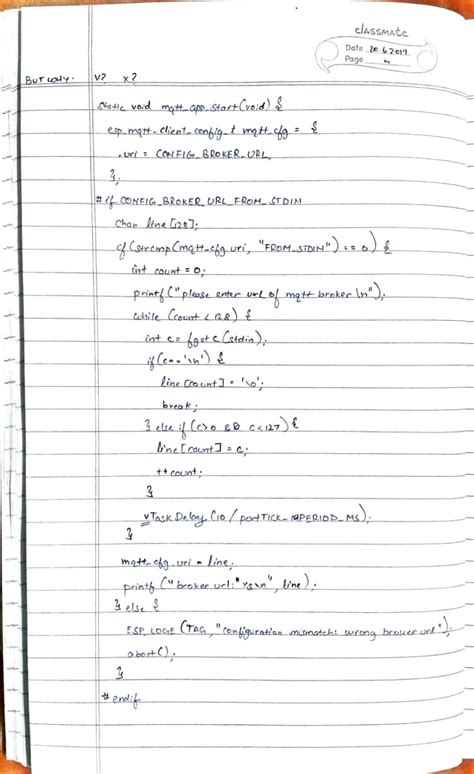 classmate
Date 20.6.2019
Page 4
BUT WHY. V? X?
static void mqtt_app_start(void) {
esp_mqtt_client_config_t mqtt_cfg = {
.uri = CONFIG_BROKER_URL,
};
#if CONFIG_BROKER_URL_FROM_STDIN
char line[128];
if (strcmp(mqtt_cfg.uri, "FROM_STDIN") == 0) {
int count = 0;
printf("please enter url of mqtt broker \n");
while (count < 128) {
int c = fgetc(stdin);
if(c=='\n') {
line[count] = '\0';
break;
} else if (c>0 && c<127) {
line[count] = c;
++count;
}
vTaskDelay (10 / portTICK_PERIOD_MS);
}
mqtt_cfg.uri = line;
printf ("broker url: %s\n", line);
} else {
ESP_LOGE (TAG, "configuration mismatch: wrong broker url");
abort();
}
#endif